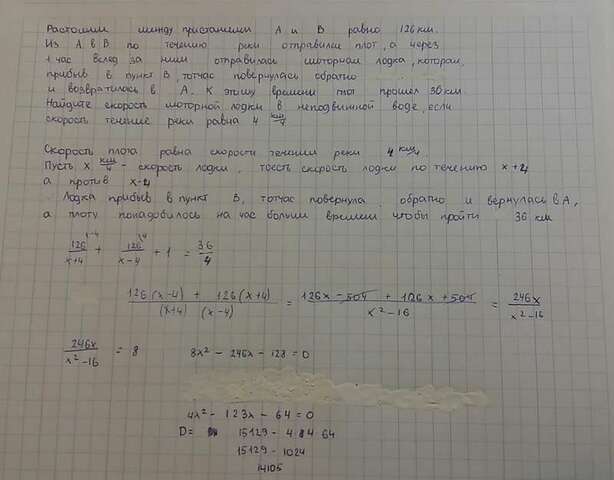 Растоянии между пристанями А и В равно 126 км.
Из А в В по течению реки отправился плот, а через
1 час вслед за ним отправилась моторная лодка, которая,
прибыв в пункт В, тотчас повернулась обратно
и возвратилась в А. К этому времени плот прошел 36 км.
Найдите скорость моторной лодки в неподвижной воде, если
скорость течение реки равна 4 км/ч
Скорость плота равна скорости течении реки 4 км/ч
Пусть х км/ч - скорость лодки, тоесть скорость лодки по течению х+4
а против х-4
Лодка прибыв в пункт В, тотчас повернула обратно и вернулась в А,
а плоту понадобилось на час больши времени чтобы пройти 36 км
126/(x+4) + 126/(x-4) + 1 = 36/4
(126(x-4) + 126(x+4))/((x+4)(x-4)) = (126x - 504 + 126x + 504)/(x²-16) = 246x/(x²-16)
246x/(x²-16) = 8 8x² - 246x - 128 = 0
4x² - 123x - 64 = 0
D = 15129 - 4 4 64
15129 - 1024
14105